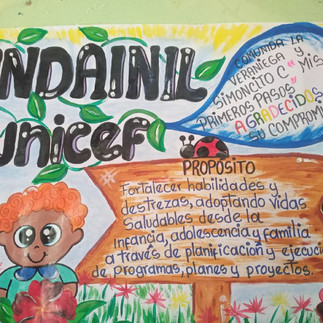 NDAINIL
unicef
COMUNIDA LA
VERANIEGA Y
SIMONCITO C "MIS
PRIMEROS PASOS"
AGRADECIDOS
SU COMPROM
PROPÓSITO
Fortalecer habilidades y
destrezas, adoptando vidas
Saludables desde la
infancia, adolescencia y familia
a través de planificación y ejecuci
de programas, planes y proyectos.